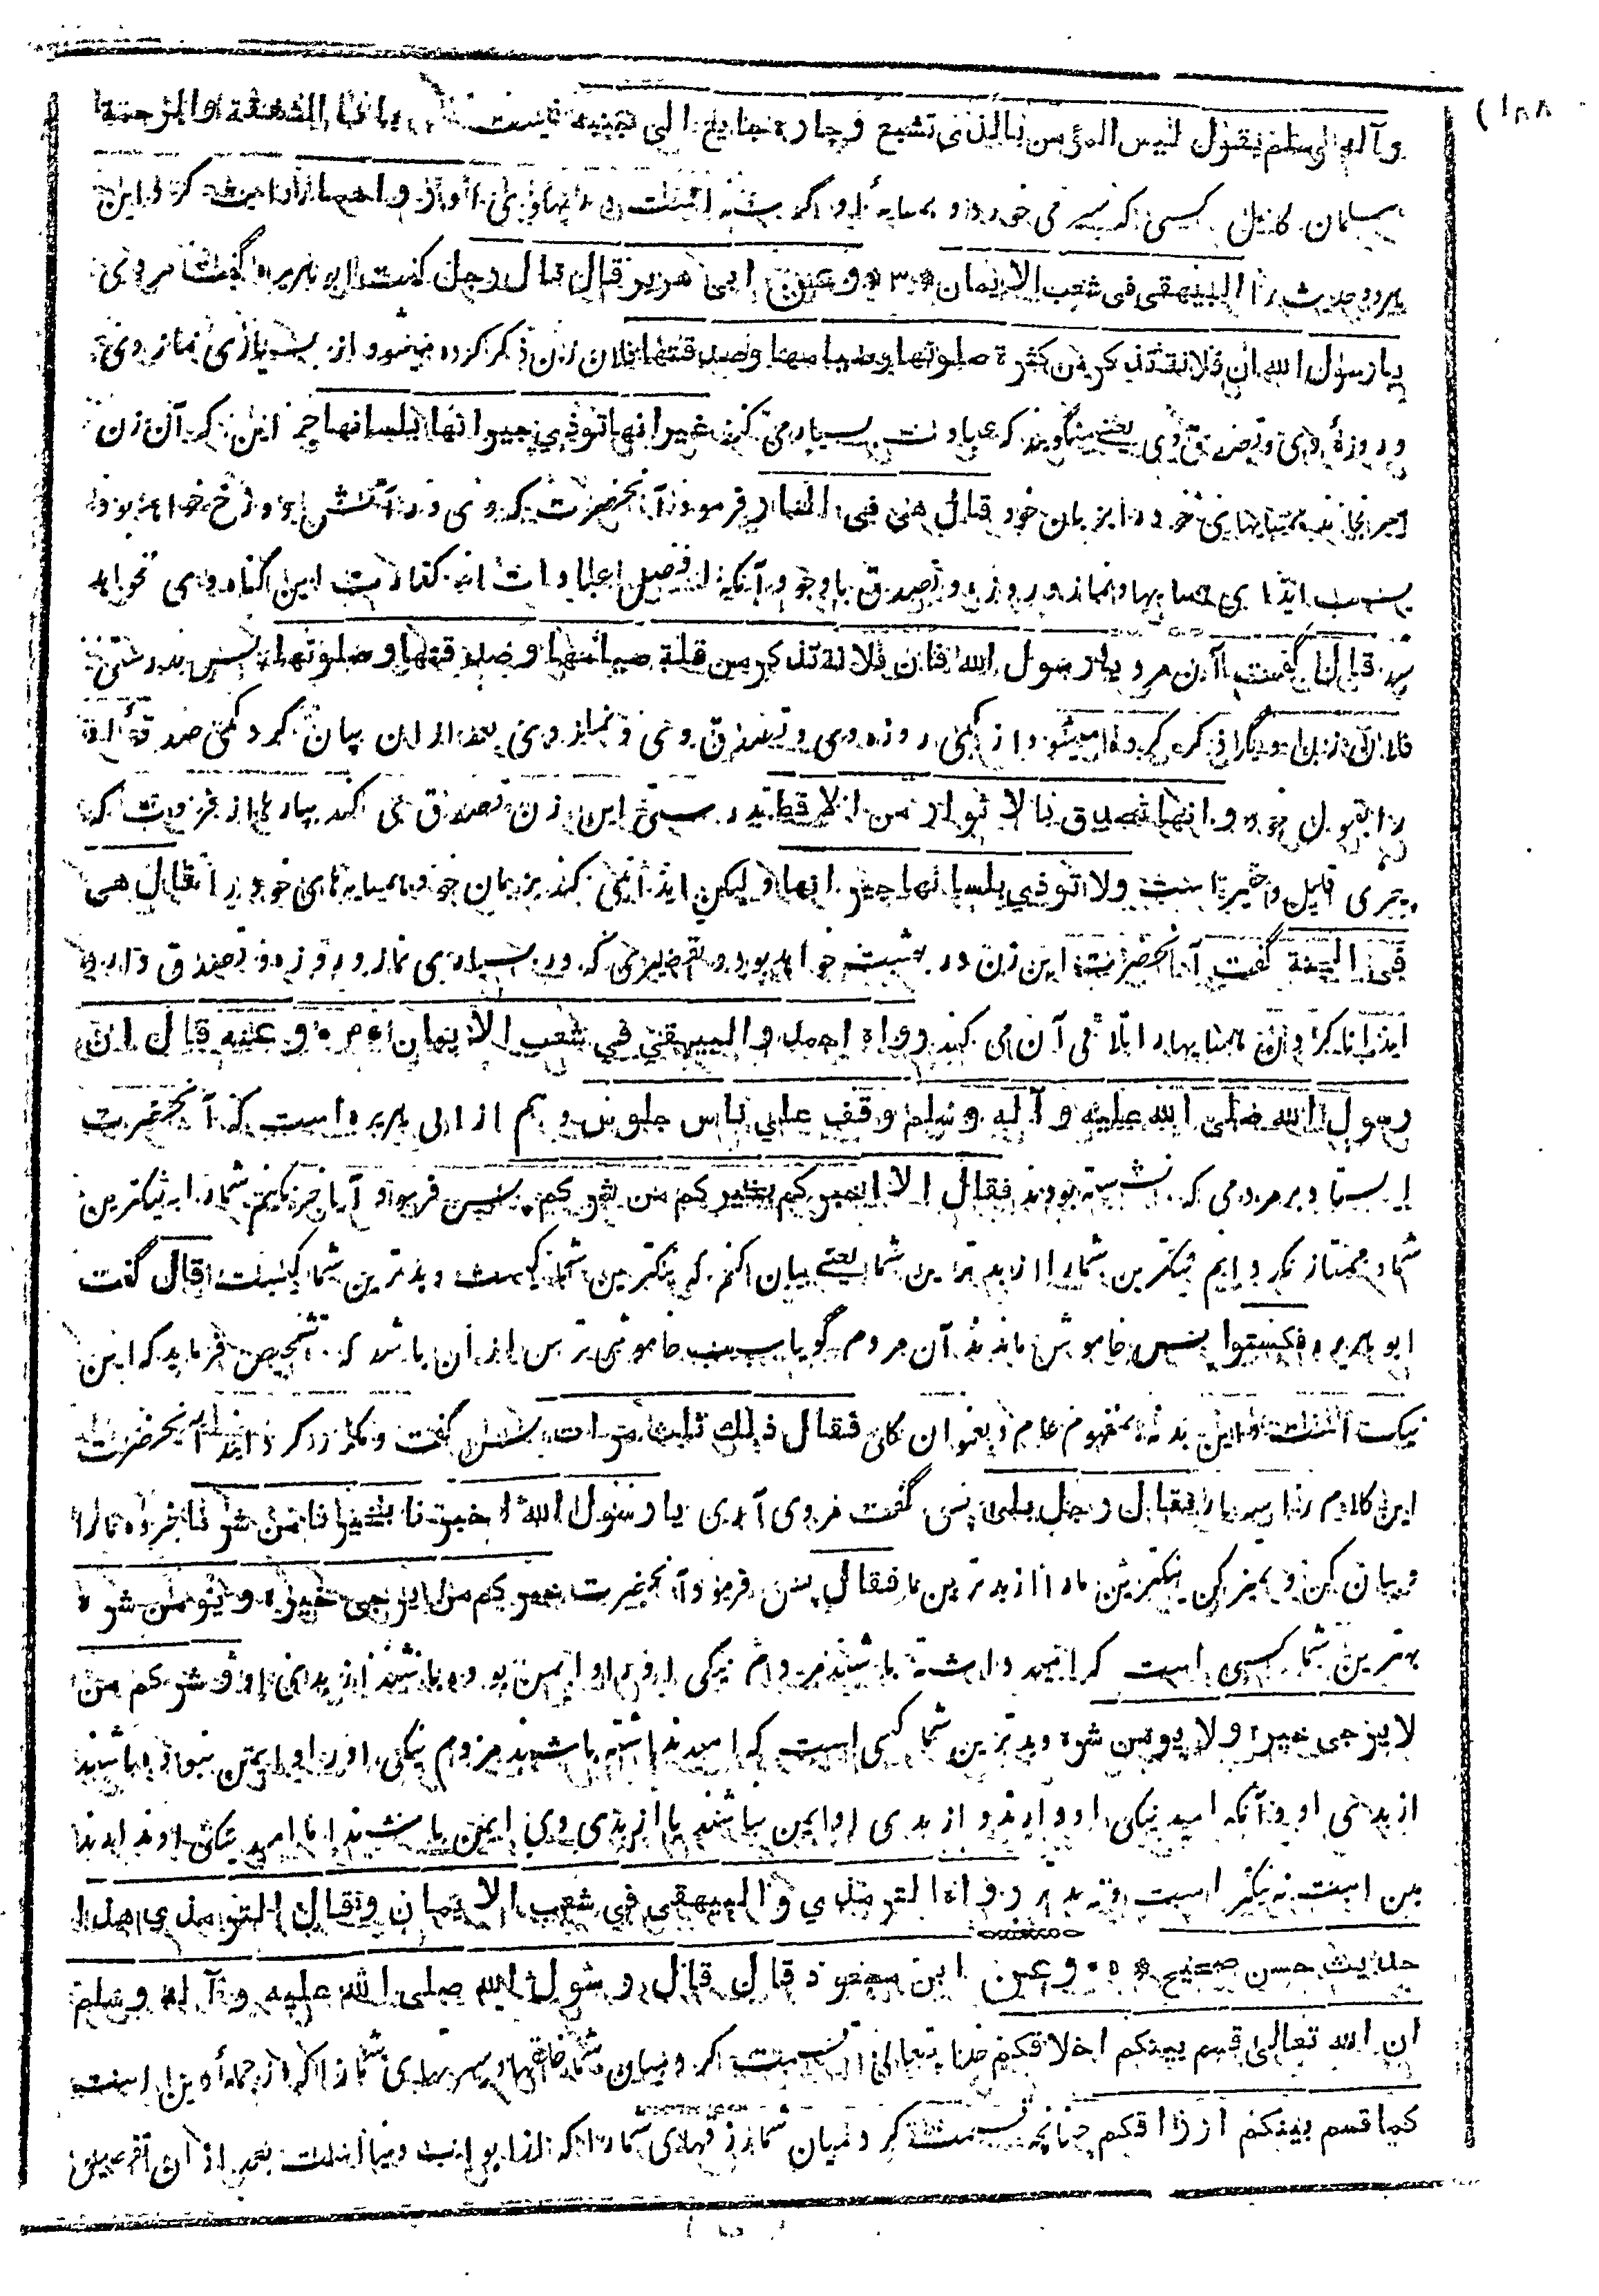 (۱۸۸
وآله وسلم يقول ليس المؤمن بالذي يشبع وجاره جايع الى جنبه نيست بايافا الشفقة والرحمة
مسلمان كامل كسی که سیر می خورد و همسایهٔ او گرسنه است در پهلوی او از و این
هر دو حدیث را البيهقى فى شعب الايمان * ۳ * وعن ابى هريرة قال قال رجل گفت ابو هریره گفت مردی
يا رسول الله ان فلانة تذكر من كثرة صلوتها وصيامها وصدقتها فلان زن ذکر کرده میشود از بسیاری نماز وی
و روزهٔ وی و تصدق وی یعنی میگویند که عبادت بسیار می کند غير انها تؤذي جيرانها بلسانها جز این که آن زن
میرنجاند همسایهای خود را بزبان خود قال هى فى النار فرمود آنحضرت که وی در آتش دوزخ خواهد بود
بسبب ایذای همسایها و نماز و روزه و تصدق باوجود آنکه افضل عبادات اند کفارت این گناه وی نخواهد
شد قال گفت آن مرد يا رسول الله فان فلانة تذكر من قلة صيامها وصدقتها وصلوتها پس بدرستی
فلان زن دیگر ذکر کرده میشود از کمی روزه وی و تصدق وی و نماز وی بعد از آن بیان کرد کمی صدقهٔ او
را بقول خود و انها تصدق بالاثوار من الاقط بدرستی این زن تصدق می کند بپارها از قروت که
چیزی قلیل و حقیر است ولا تؤذي بلسانها جيرانها و لیکن ایذا نمی کند بزبان خود همسایهای خود را قال هى
فى الجنة گفت آنحضرت این زن در بهشت خواهد بود و تقصیری که در بسیاری نماز و روزه و تصدق دارد
ایذا نا کردن همسایها را تلافی آن می کند رواه احمد والبيهقي في شعب الايمان * ۴ * وعنه قال ان
رسول الله صلى الله عليه وآله وسلم وقف على ناس جلوس و هم از ابی هریره است که آنحضرت
ایستاد بر مردمی که نشسته بودند فقال الا اخبركم بخيركم من شركم پس فرمود آیا خبر نکنم شما را به نیکترین
شما و ممتاز نگردانم نیکترین شما را از بدترین شما یعنی بیان کنم که نیکترین شما کیست و بدترین شما کیست قال گفت
ابو هریره فسكتوا پس خاموش ماندند آن مردم گویا سبب خاموشی ترس از آن باشد که تشخیص فرماید که این
نیک است و این بد نه بمفهوم عام و بعنوان کلی فقال ذلك ثلث مرات پس گفت و مکرر گردانید آنحضرت
این کلام را سه بار فقال رجل بلى پس گفت مردی آری يا رسول الله اخبرنا بخيرنا من شرنا خبر ده ما را
و بیان کن و تمیز کن نیکترین ما را از بدترین ما فقال پس فرمود آنحضرت خيركم من يرجى خيره ويؤمن شره
بهترین شما کسی است که امید داشته باشند مردم نیکی او را و ایمن بوده باشند از بدی او وشركم من
لا يرجى خيره ولا يؤمن شره و بدترین شما کسی است که امید نداشته باشند مردم نیکی او را و ایمن نبوده باشند
از بدی او و آنکه امید نیکی او دارند و از بدی او ایمن نباشند یا از بدی وی ایمن باشند اما امید نیکی او ندارند
بین است نه نیکتر است و نه بدتر رواه الترمذي والبيهقي في شعب الايمان وقال الترمذي هذا
حديث حسن صحيح * ۵ * وعن ابن مسعود قال قال رسول الله صلى الله عليه وآله وسلم
ان الله تعالى قسم بينكم اخلاقكم خدا تعالی قسمت کرد میان شما خلقها و سیرتهای شما را که از جملهٔ دین است
كما قسم بينكم ارزاقكم چنانچه قسمت کرد میان شما رزقهای شما را که از ابواب دنیا است بعد از آن